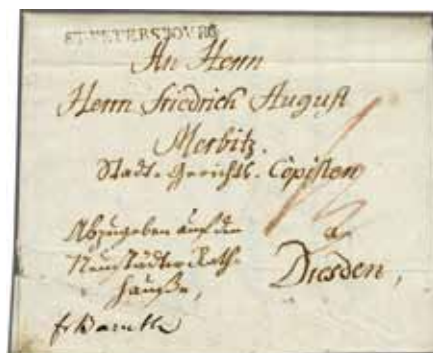 ST.PETERSBOURG
An Herrn
Herrn Friedrich August
Merbitz.
Stadt-Gerichts-Copisten
a
Abzugeben auf dem
Neustädter Rath-
Dresden,
hauße,
fr Barutk